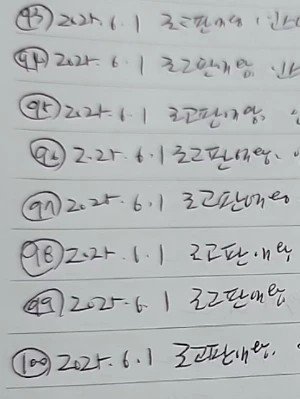 (93) 2025.6.1 로고판매왕, 인스
(94) 2025.6.1 로고판매왕, 인스
(95) 2025.6.1 로고판매왕,
(96) 2025.6.1 로고판매왕,
(97) 2025.6.1 로고판매왕
(98) 2025.6.1 로고판매왕
(99) 2025.6.1 로고판매왕
(100) 2025.6.1 로고판매왕.